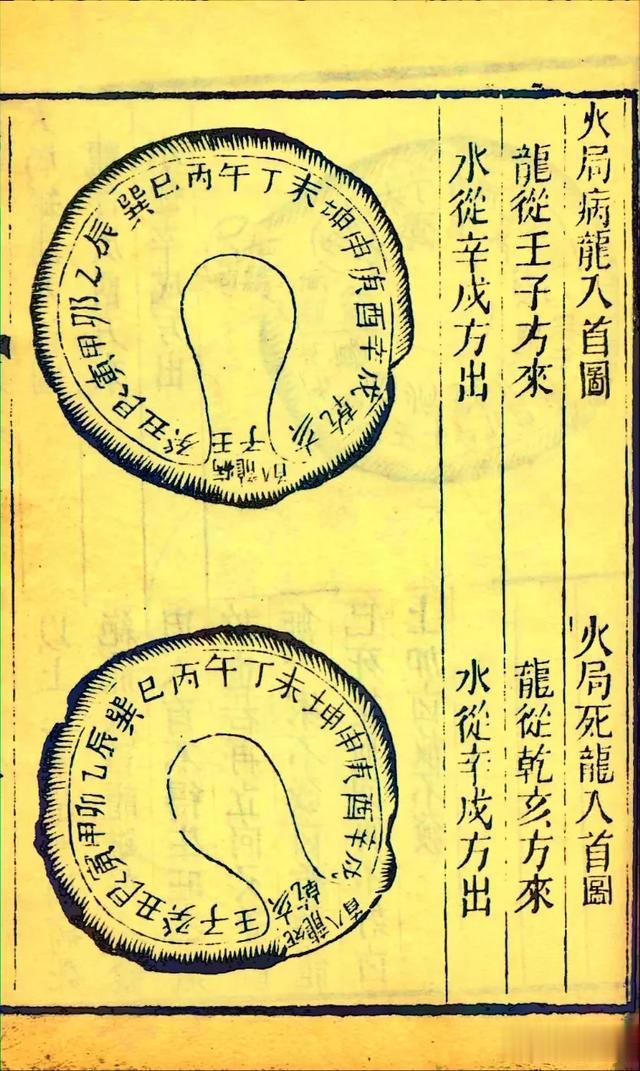 火局病龍入首圖
龍從壬子方來
水從辛戌方出
巽巳丙午丁未坤申庚酉辛戌乾亥壬子癸丑艮寅甲卯乙辰
病龍入首
火局死龍入首圖
龍從乾亥方來
水從辛戌方出
巽巳丙午丁未坤申庚酉辛戌乾亥壬子癸丑艮寅甲卯乙辰
死龍入首